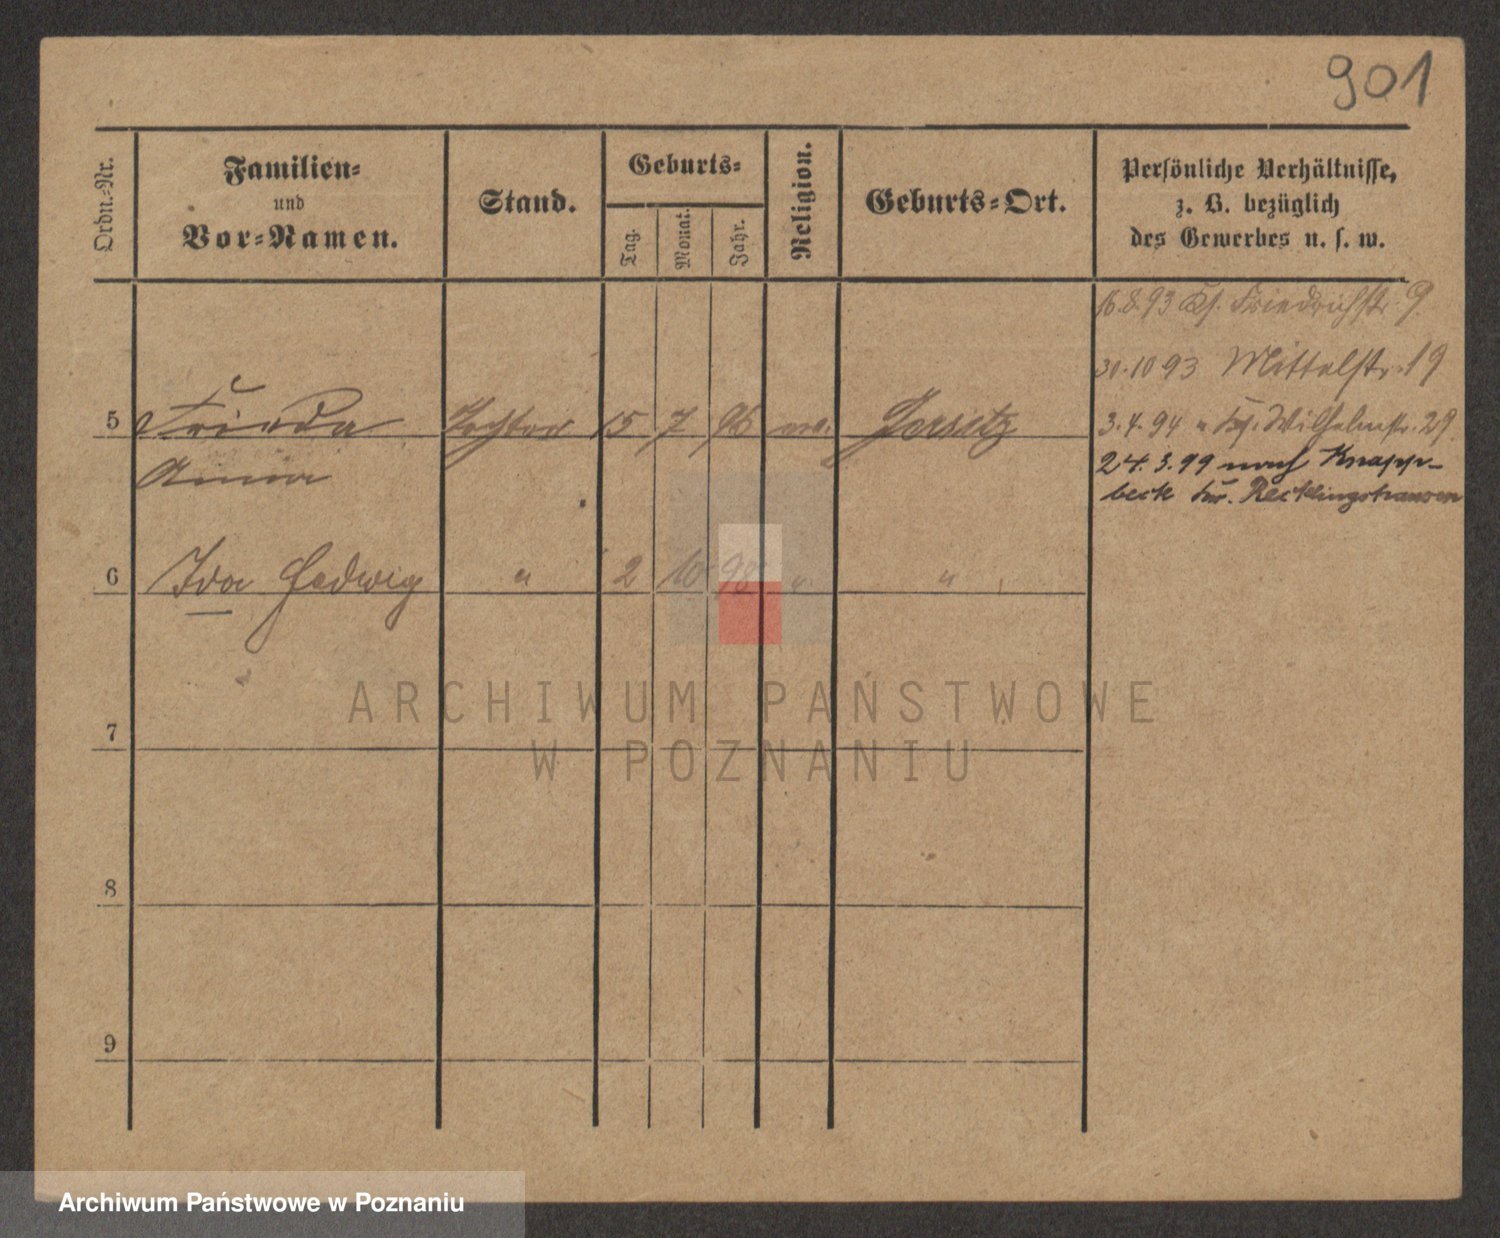 901
Ordn.-Nr.
Familien-
und
Vor-Namen.
Stand.
Geburts-
Tag.
Monat.
Jahr.
Religion.
Geburts-Ort.
Persönliche Verhältnisse,
z. B. bezüglich
des Gewerbes u. s. w.
16.8.93 Friedrichstr. 9.
30.10 93 Mittelstr. 19
5 Frieda Tochter 15 7 96 ev. Jersitz
3.4.94 " Wilhelmstr. 29.
Anna
24.3.99 nach Knapp-
beck Kr. Recklingshausen
6 Ida Hedwig " 2 10 98 " "
ARCHIWUM PAŃSTWOWE
W POZNANIU
7
8
9
Archiwum Państwowe w Poznaniu